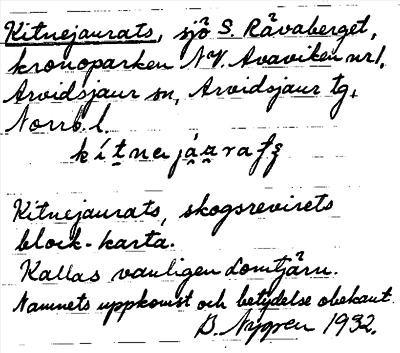 Kitnejaurats, sjö S. Råvaberget,
kronoparken NV. Avaviken nr 1,
Arvidsjaur sn, Arvidsjaur tg,
Norrb. l.
Kitnejaurats, skogsrevirets
block-karta.
Kallas vanligen Lomtjärn.
Namnets uppkomst och betydelse obekant.
B. Nygren 1932.